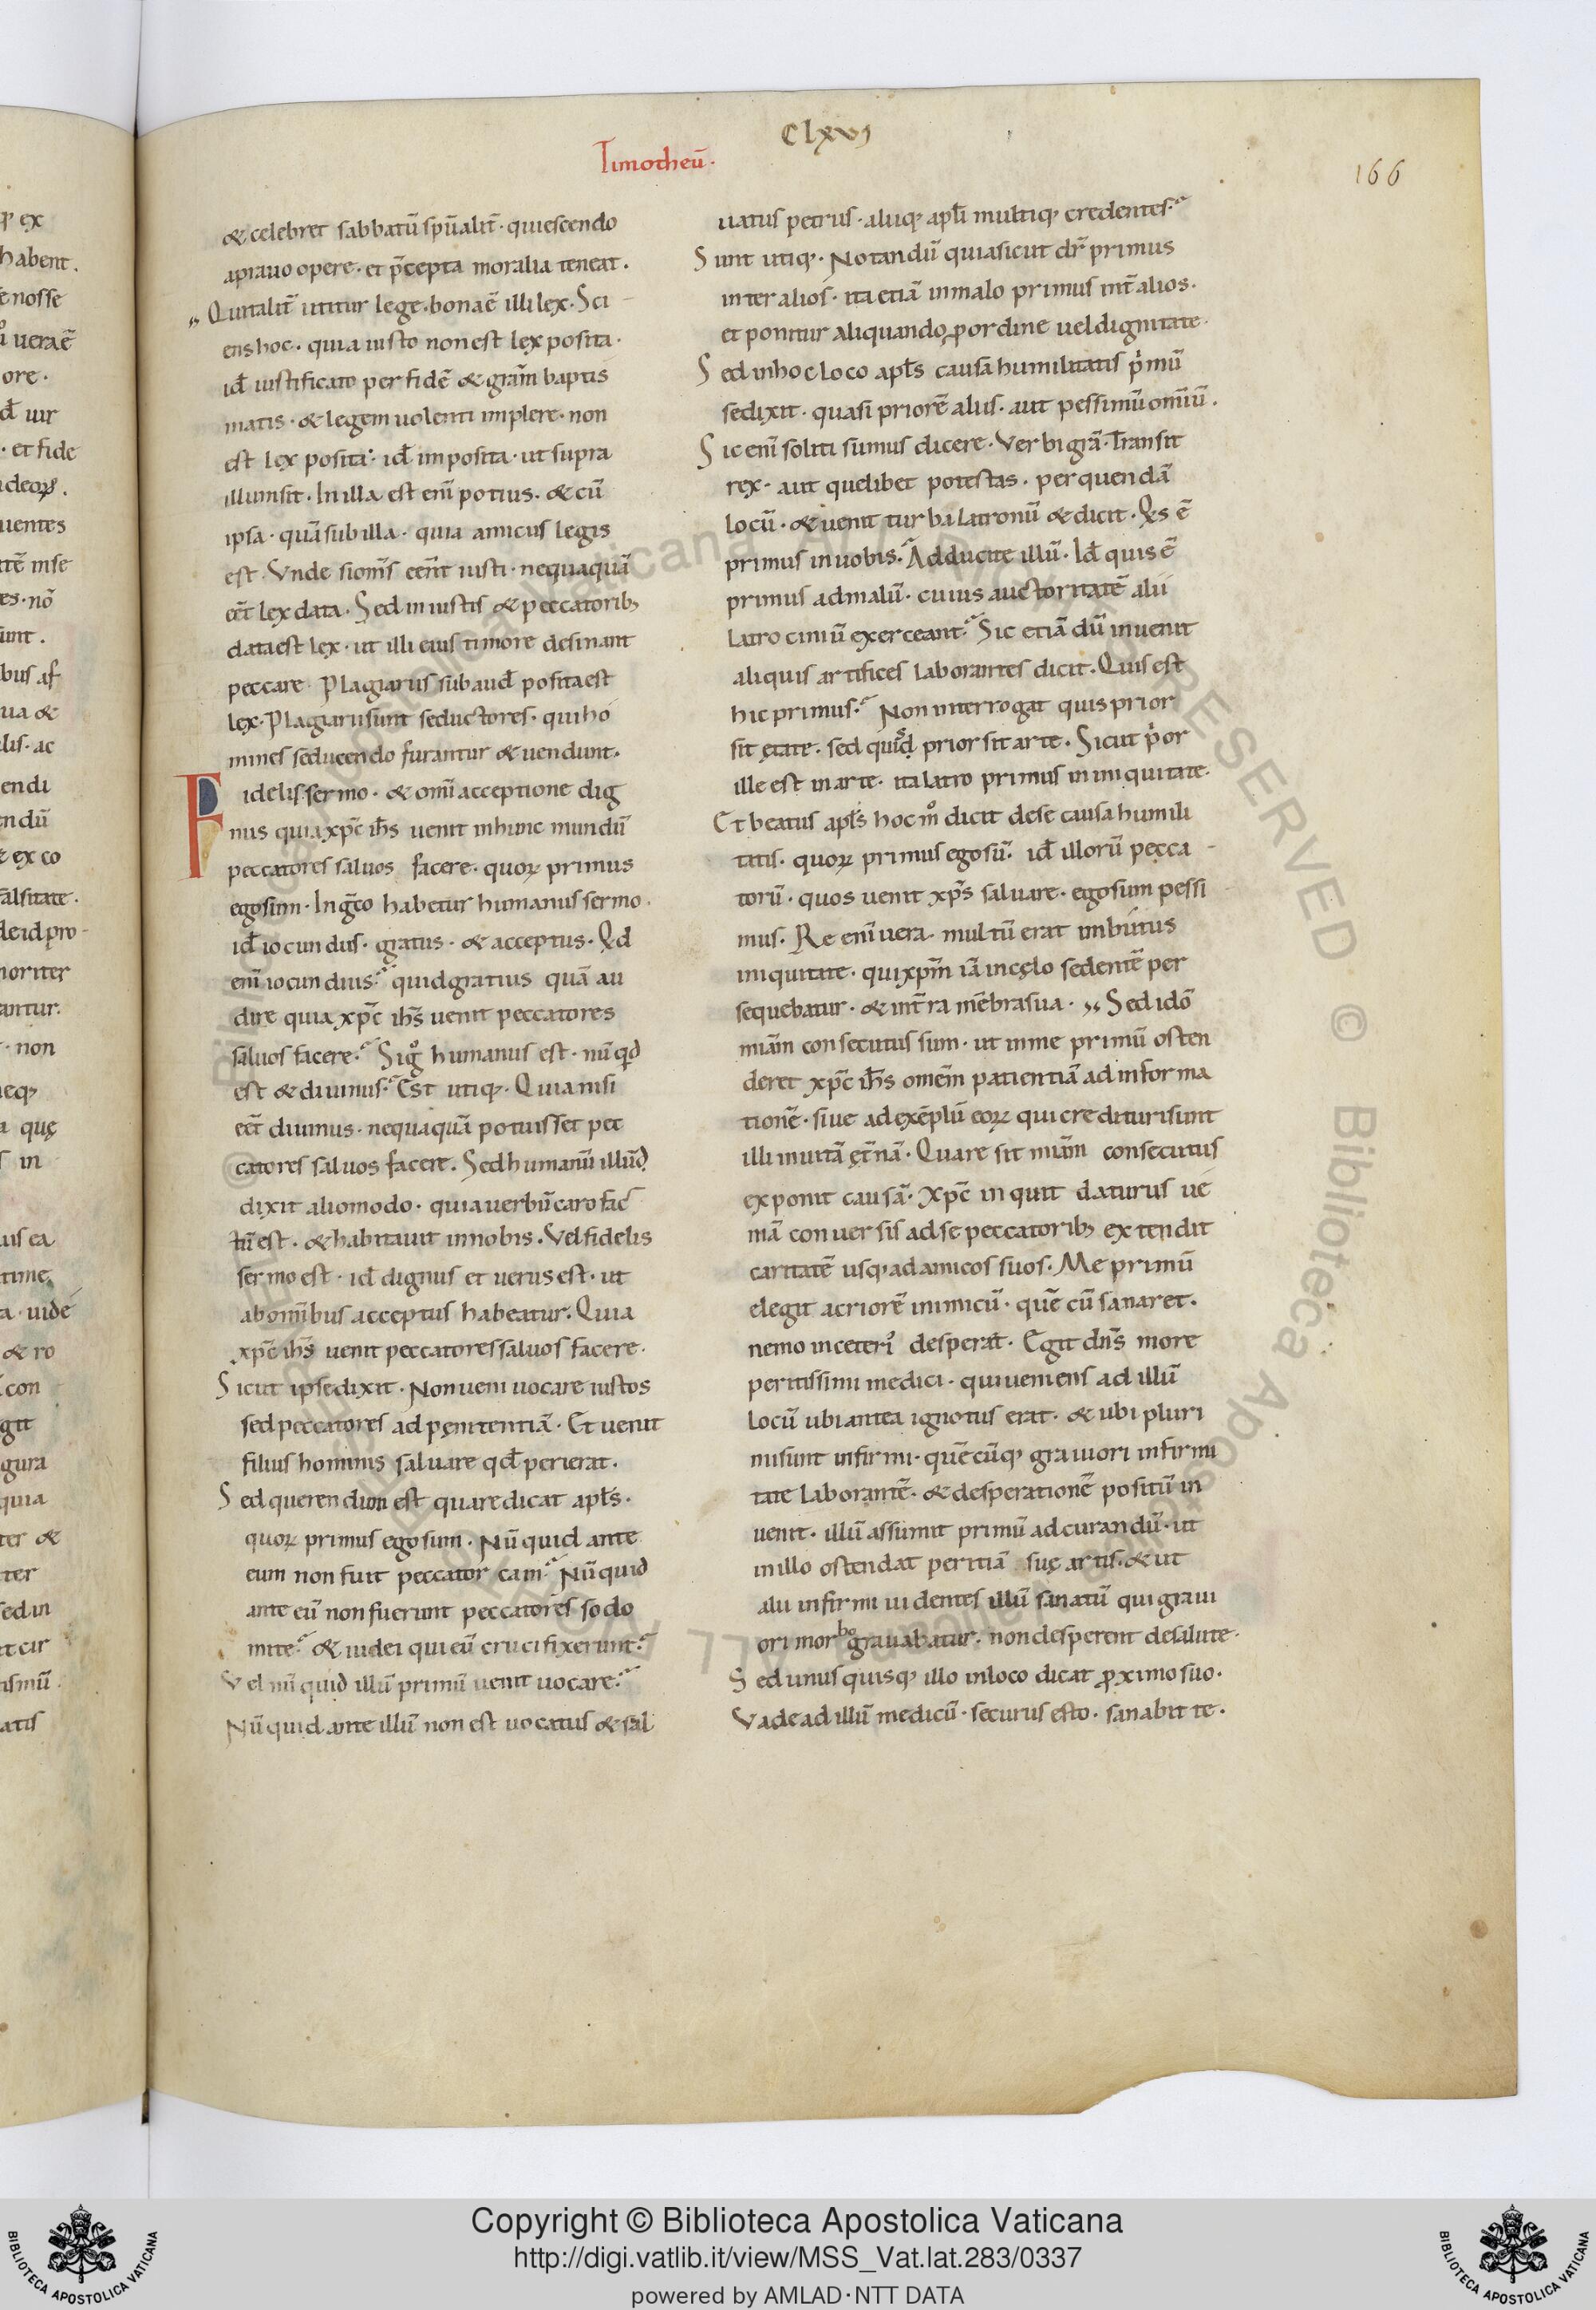 Clxvj
Timotheū.
166
& celebret sabbatū sp̄ualit̄· quiescendo
aprauo opere· et p̄cepta moralia teneat.
Qui talit̄ utitur lege· bona ē illi lex. Sci
ens hoc· quia iusto non est lex posita·
id̄ iustificato per fidē & grām baptis
matis· & legem uolenti implere· non
est lex posita· id̄ imposita· ut supra
illum sit. In illa est enī potius· & cū
ipsa· quā sub illa· quia amicus legis
est. Vnde si om̄s een̄t iusti· nequaquā
eēt lex data. Sed iniustis & peccatorib;
data est lex· ut illi eius timore desinant
peccare· Plagiariis subaud̄ posita est
lex· Plagiarii sunt seductores· qui ho
mines seducendo furantur & uendunt.
Fidelis sermo· & omī acceptione dig
nus quia xp̄c ih̄s uenit in hunc mundū
peccatores saluos facere· quorꝝ primus
ego sum· In gr̄co habetur humanus sermo.
id̄ iocundus· gratus· & acceptus. Qd
enī iocundius? quid gratius quā au
dire quia xp̄c ih̄s uenit peccatores
saluos facere? Si gͦ humanus est· nū qd
est & diuinus? Est utiq;· Quia nisi
eēt diuinus· nequaquā potuisset pec
catores saluos facere. Sed humanū illud
dixit alio modo· quia uerbū caro fac
tū est· & habitauit in nobis. Vel fidelis
sermo est· id̄ dignus et uerus est· ut
ab omībus acceptus habeatur. Quia
xp̄c ih̄s uenit peccatores saluos facere·
Sicut ipse dixit· Non ueni uocare iustos
sed peccatores ad pęnitentiā· Et uenit
filius hominis saluare qd̄ perierat.
Sed querendum est quare dicat apl̄s·
quorꝝ primus ego sum· Nū quid ante
eum non fuit peccator cain? Nū quid
ante eū non fuerunt peccatores sodo
mite? & iudei qui eū crucifixerunt?
Vel nū quid illū primū uenit uocare?
Nū quid ante illū non est uocatus & sal
uatus petrus· aliiq; apl̄i multiq; credentes?
Sunt utiq;· Notandū quia sicut dr̄ primus
inter alios· ita etiā in malo primus int̄ alios·
et ponitur aliquando ꝓ ordine uel dignitate·
Sed in hoc loco apl̄s causa humilitatis p̄mū
se dixit· quasi priorē aliis· aut pessimū omīū.
Sic enī soliti sumus dicere· Verbi grā· Transit
rex· aut quelibet potestas· per quendā
locū· & uenit turba latronū & dicit· Qis ē
primus in uobis? Adducite illū· Id̄ quis ē
primus ad malū· cuius auctoritatē alii
latrociniū exerceant? Sic etiā dū inuenit
aliquis artifices laborantes dicit. Quis est
hic primus? Non interrogat quis prior
sit ętate· sed quis prior sit arte. Sicut p̄or
ille est in arte· ita latro primus in iniquitate·
Et beatus apl̄s hoc mͦ dicit de se causa humili
tatis· quorꝝ primus ego sū· id̄ illorū pecca
torū· quos uenit xp̄s saluare· ego sum pessi
mus. Re enī uera· multū erat inbutus
iniquitate· qui xpm̄ iā in cęlo sedentē per
sequebatur· & int̄ra mēbra sua· Sed idō
miām consecutus sum· ut in me primū osten
deret xp̄c ih̄s omem̄ patientiā ad informa
tionē· siue ad exēplū eorꝝ qui credituri sunt
illi in uitā ęt̄nā· Quare sit miām consecutus
exponit causā· Xp̄c inquit daturus ue
niā conuersis ad se peccatorib; extendit
caritatē usq; ad amicos suos. Me primū
elegit acriorē inimicū· quē cū sanaret·
nemo in ceteri᷒ desperat· Egit dn̄s more
peritissimi medici· qui ueniens ad illū
locū ubi antea ignotus erat· & ubi pluri
mi sunt infirmi· quēcūq; grauiori infirmi
tate laborantē· & desperationē positū in
uenit· illū assumit primū ad curandū· ut
in illo ostendat peritiā suę artis· & ut
alii infirmi uidentes illū sanatū qui graui
ori morbo grauabatur· non desperent de salute·
Sed unusquisq; illo in loco dicat ꝓximo suo·
Vade ad illū medicū· securus esto· sanabit te·
Copyright © Biblioteca Apostolica Vaticana
http://digi.vatlib.it/view/MSS_Vat.lat.283/0337
powered by AMLAD·NTT DATA
BIBLIOTECA APOSTOLICA VATICANA
BIBLIOTECA APOSTOLICA VATICANA